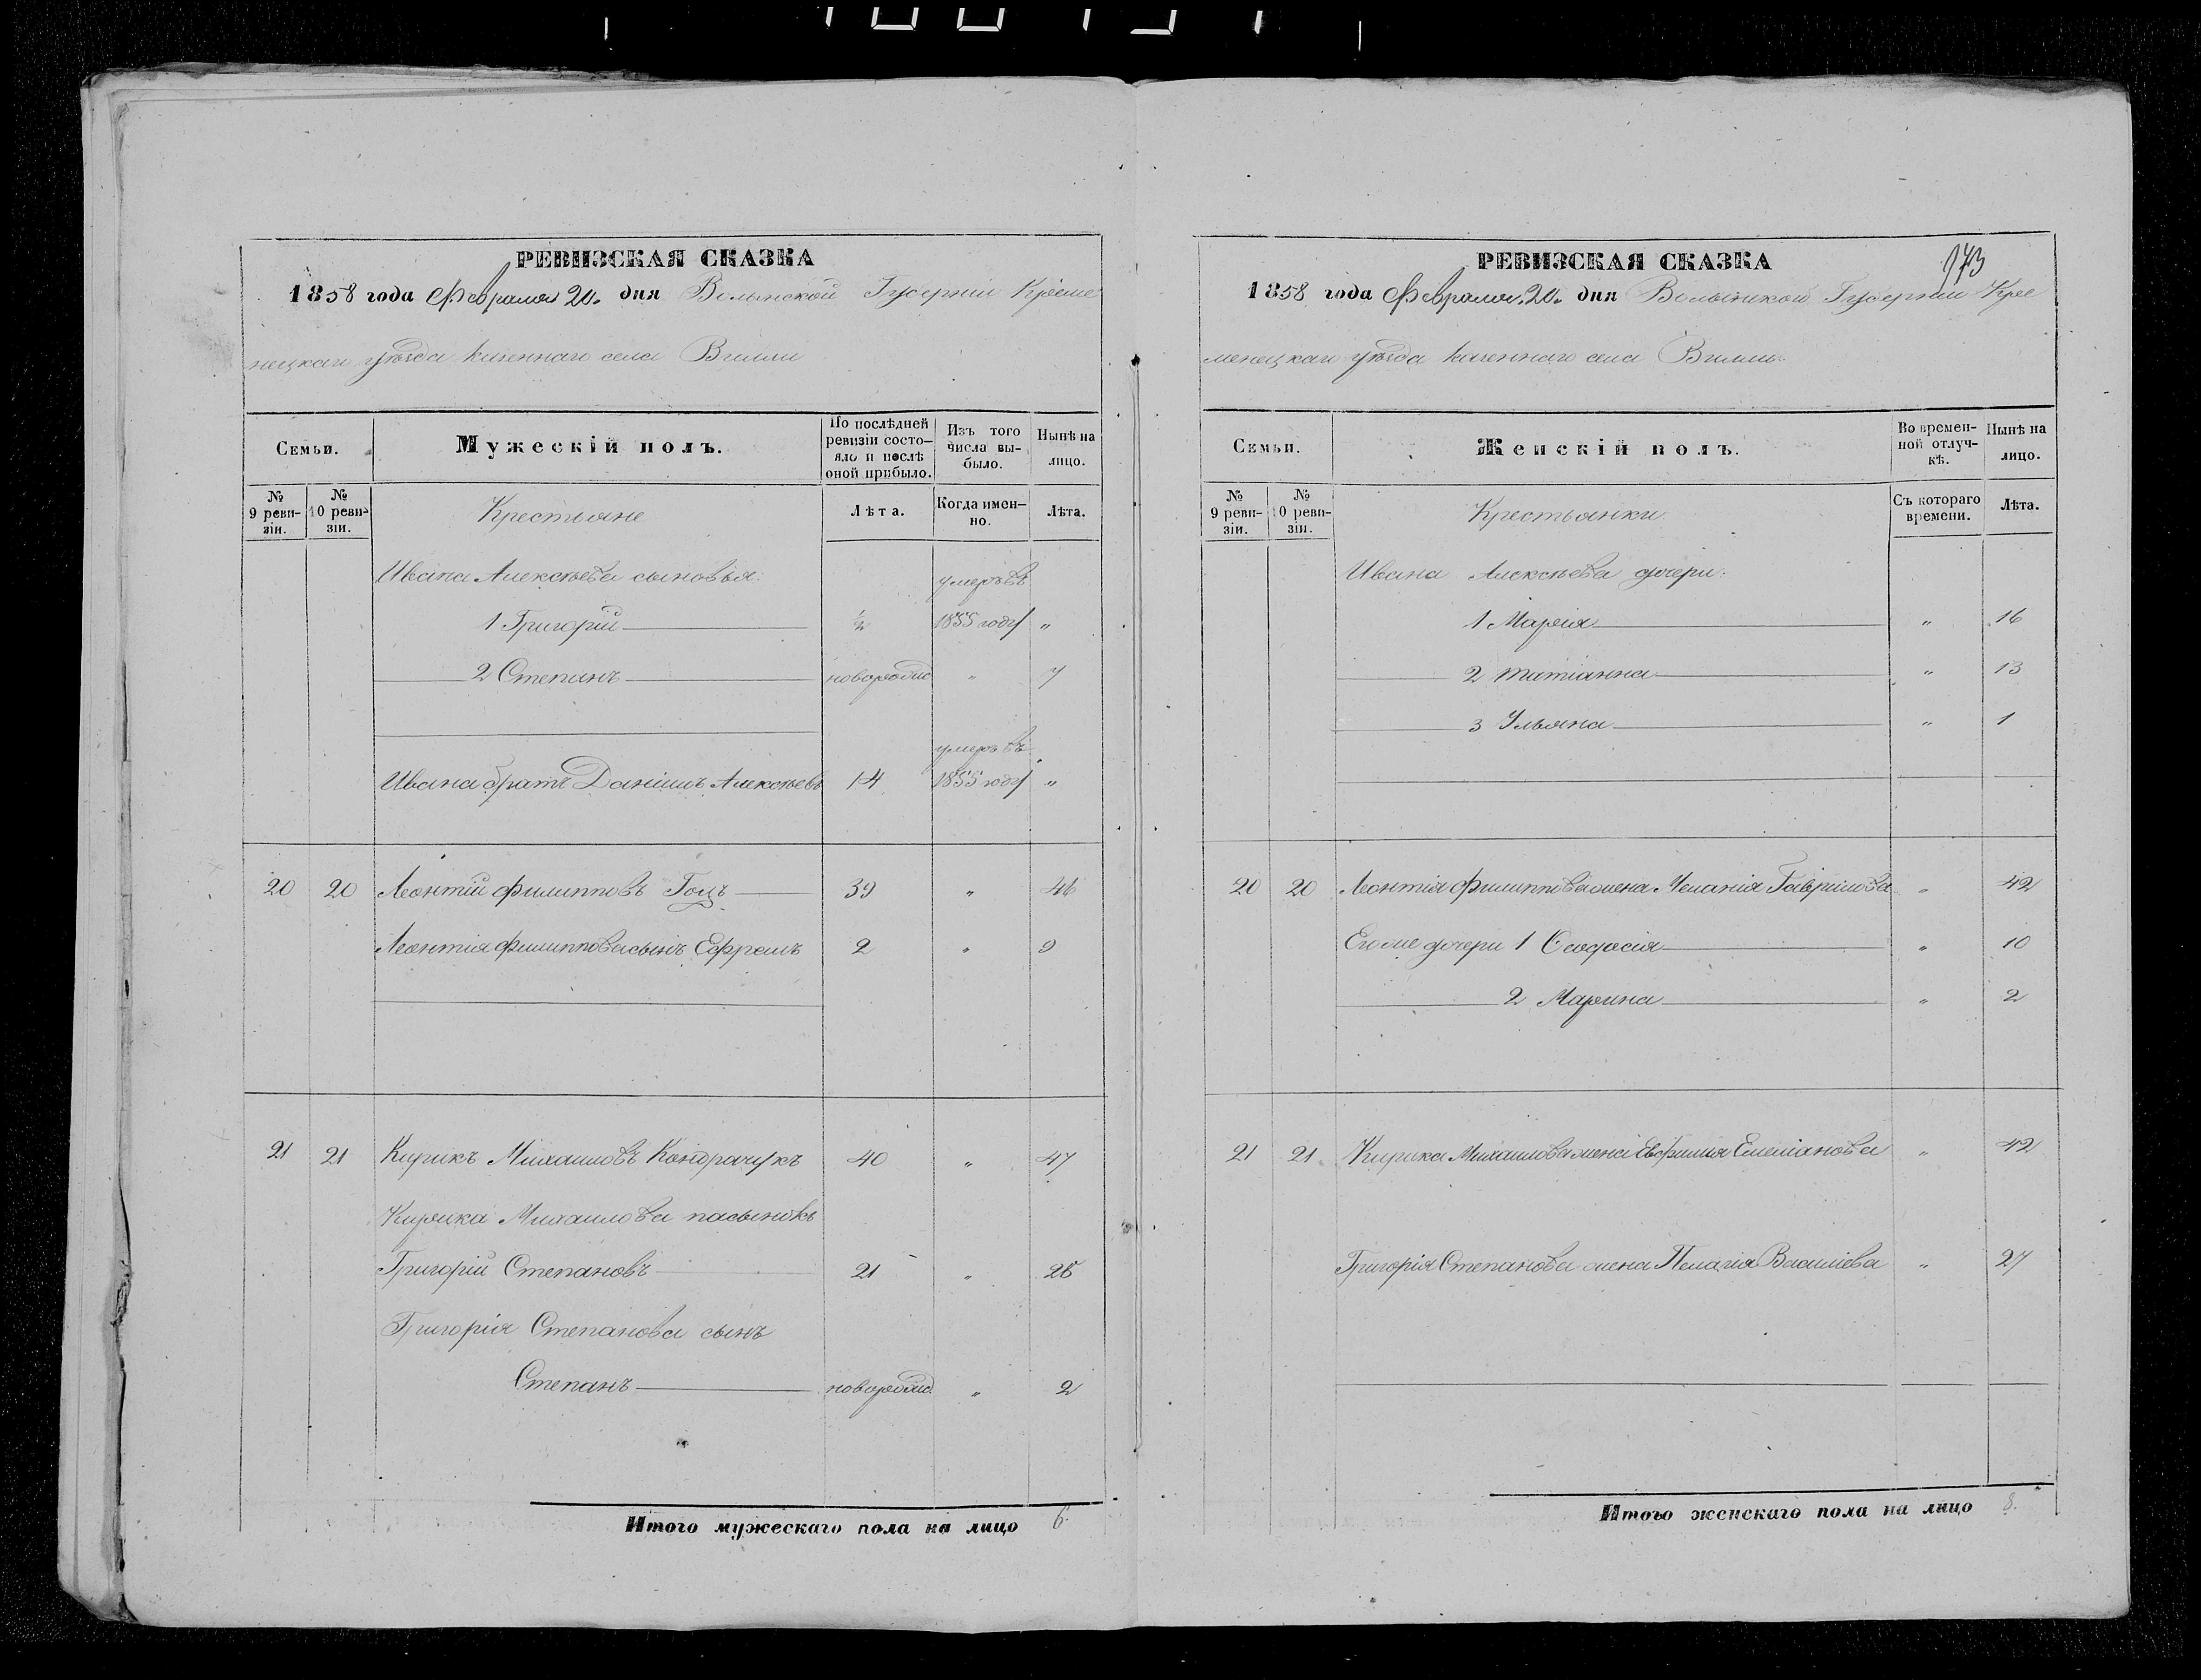 РЕВИЗСКАЯ СКАЗКА
1858 года Февраля 20. дня Волынской Губерніи Креме
нецкаго уѣзда казеннаго села Вилли
Семьи.
Мужескій полъ.
По послѣдней ревизіи состояло и послѣ оной прибыло.
Изъ того числа выбыло.
Нынѣ на лицо.
№ 9 ревизіи.
№ 10 ревизіи.
Крестьяне
Лѣта.
Когда именно.
Лѣта.
Ивана Алексѣева сыновья:
умеръ въ
1 Григорій ½ 1855 году "
2 Степанъ новорожд " 7
умеръ въ
Ивана братъ Даніилъ Алексѣевъ 14 1855 году "
20 20 Леонтій Филипповъ Гоцъ 39 " 46
Леонтія Филиппова сынъ Ефремъ 2 " 9
21 21 Кирикъ Михаиловъ Кондрачукъ 40 " 47
Кирика Михаилова пасынокъ
Григорій Степановъ 21 " 28
Григорія Степанова сынъ
Степанъ новорожд. " 2
Итого мужескаго пола на лицо 6.
173
РЕВИЗСКАЯ СКАЗКА
1858 года Февраля 20. дня Волынской Губерніи Кре
менецкаго уѣзда казеннаго села Вилли
Семьи.
Женскій полъ.
Во временной отлучкѣ.
Нынѣ на лицо.
№ 9 ревизіи.
№ 10 ревизіи.
Крестьянки
Съ котораго времени.
Лѣта.
Ивана Алексѣева дочери:
1 Марія " 16
2 Татіанна " 13
3 Ульяна " 1
20 20 Леонтія Филиппова жена Меланія Гаврилова " 42
Его же дочери 1 Феодосія " 10
2 Марина " 2
21 21 Кирика Михаилова жена Евфимія Емеліанова " 42
Григорія Степанова жена Пелагія Василіева " 27
Итого женскаго пола на лицо 8.